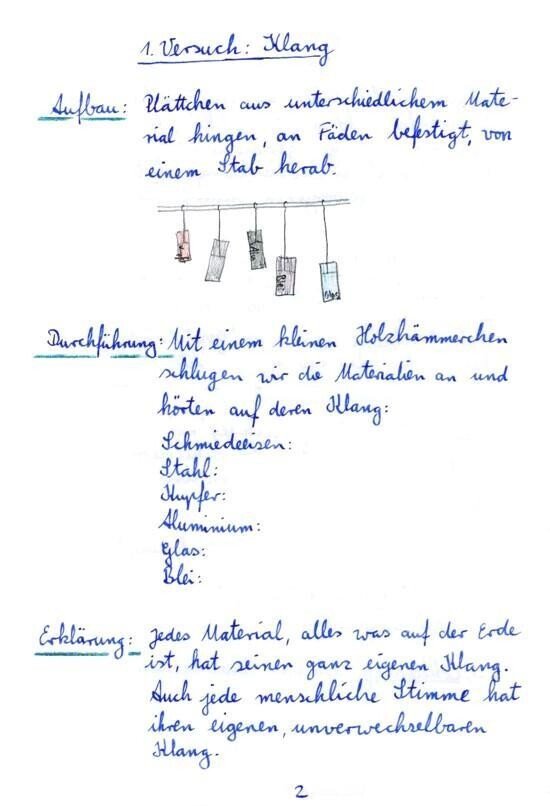 1. Versuch: Klang
Aufbau: Plättchen aus unterschiedlichem Mate-
rial hingen, an Fäden befestigt, von
einem Stab herab.
Alu
Blei
Glas
Durchführung: Mit einem kleinen Holzhämmerchen
schlugen wir die Materialien an und
hörten auf deren Klang:
Schmiedeeisen:
Stahl:
Kupfer:
Aluminium:
Glas:
Blei:
Erklärung: Jedes Material, alles was auf der Erde
ist, hat seinen ganz eigenen Klang.
Auch jede menschliche Stimme hat
ihren eigenen, unverwechselbaren
Klang.
2